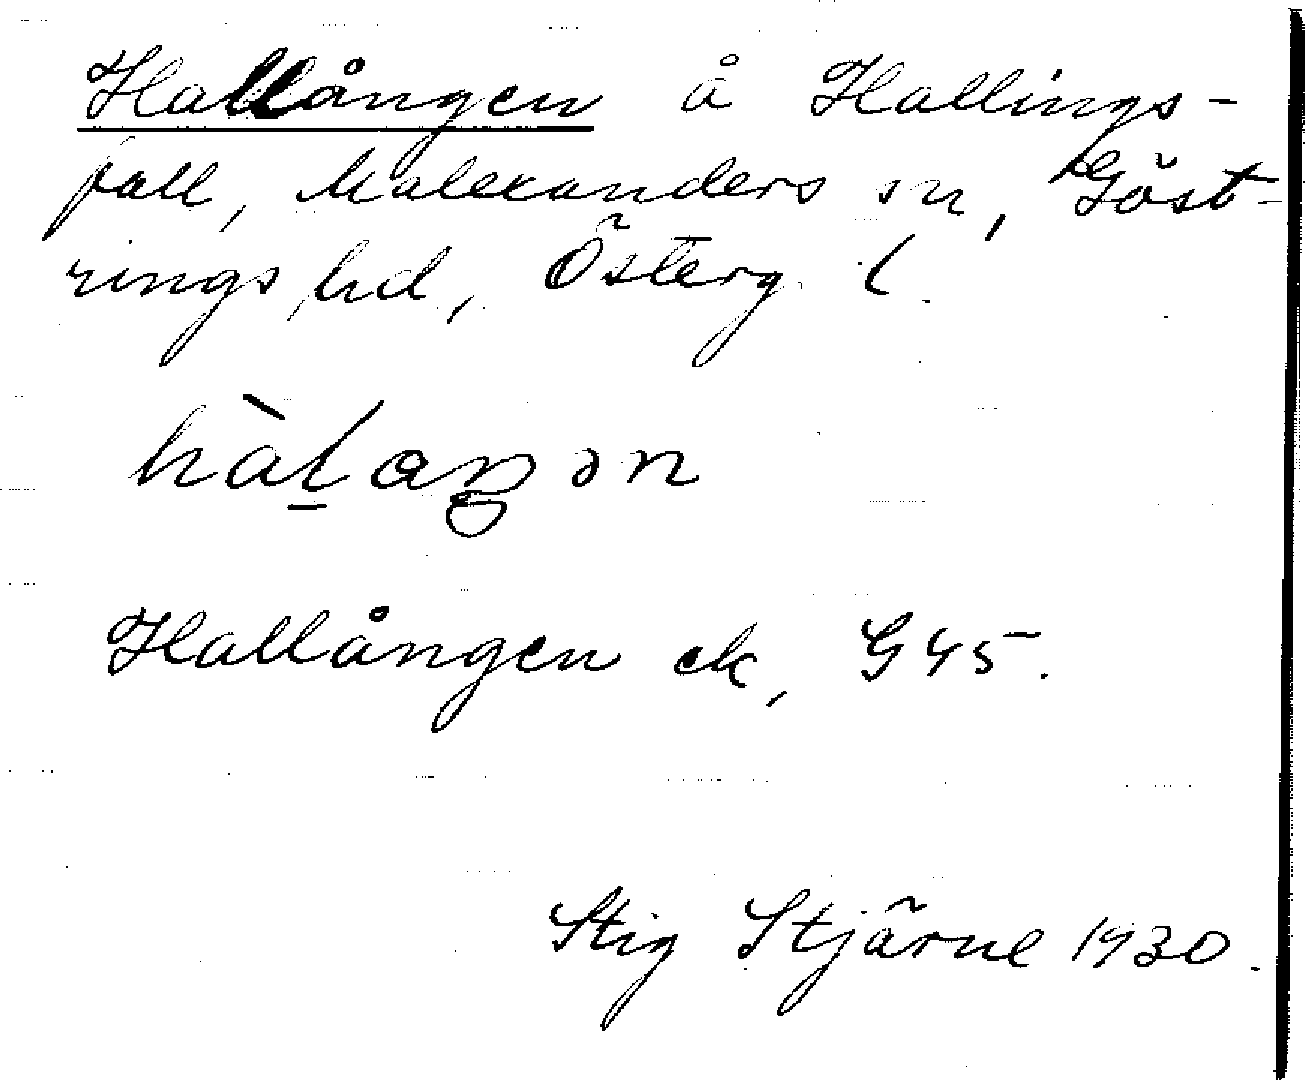 Hallången å Hallings-
fall, Malexanders sn, Göst-
rings hd, Österg. l.
Hallången ek, G 45.
Stig Stjärne 1930.